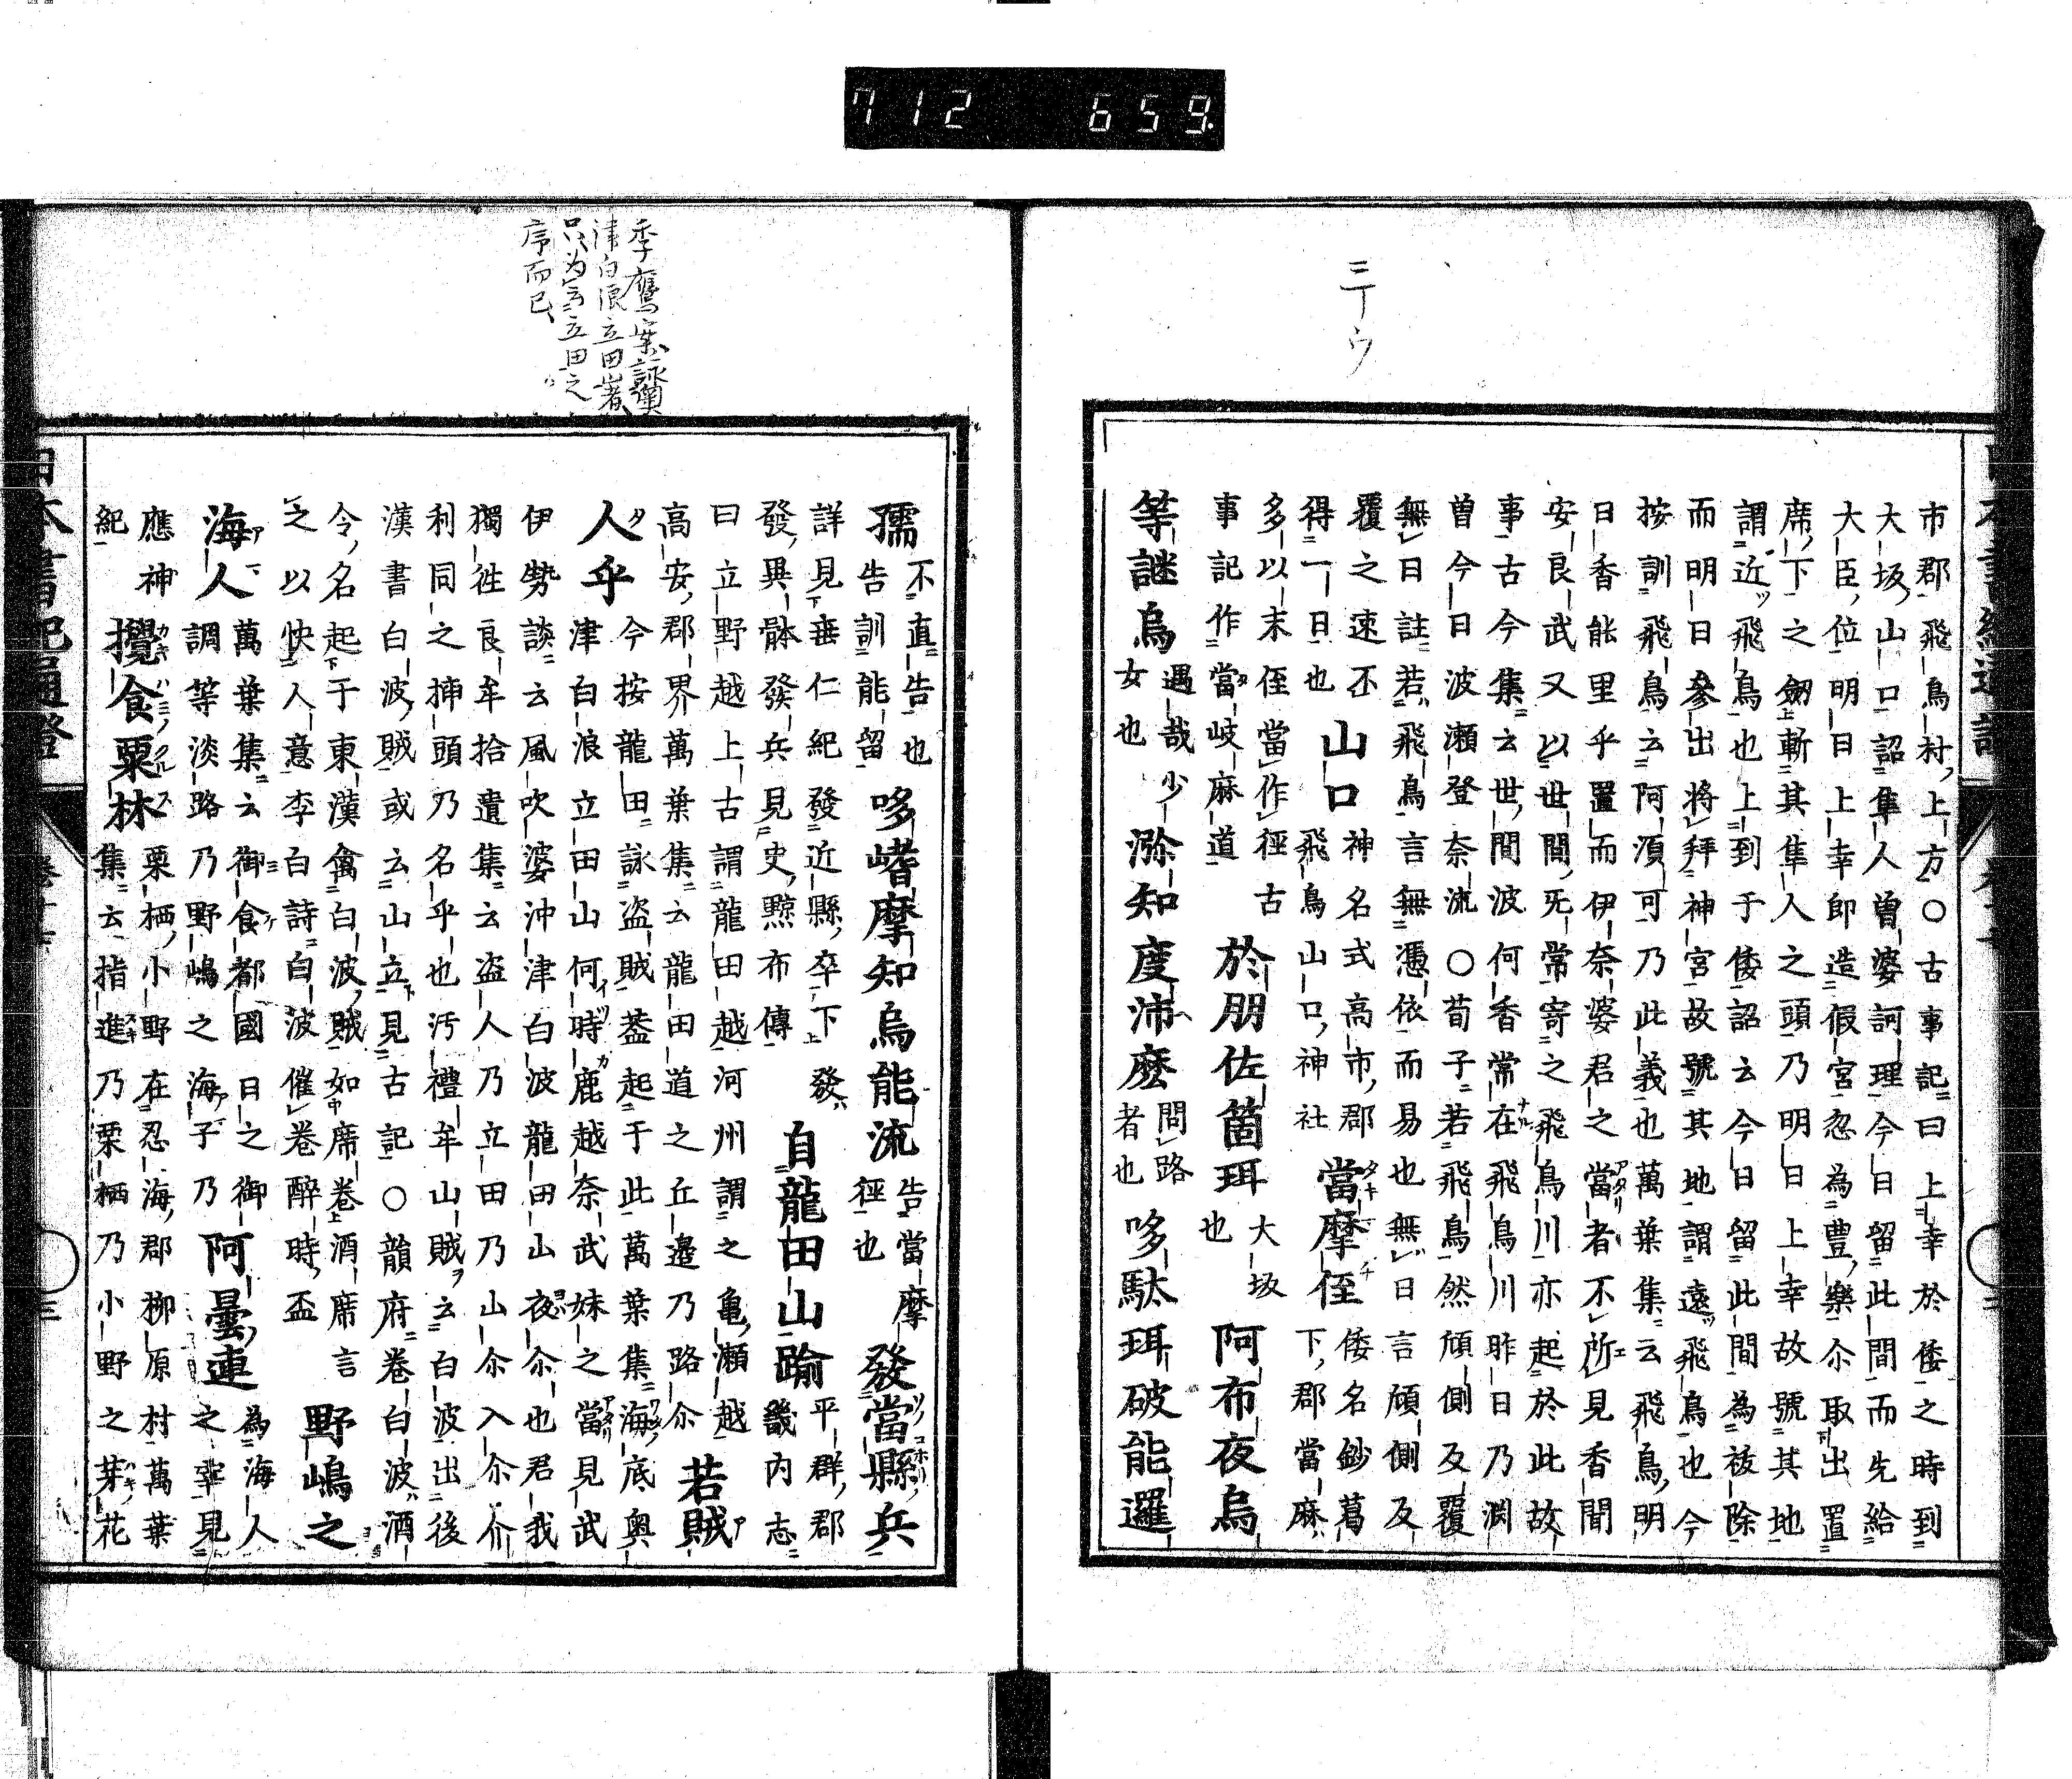 712 659
三丁ウ
市郡飛鳥村上方○古事記曰上幸於倭之時到
大坂山口詔隼人曽婆訶理今日留此間而先給
大臣位明日上幸即造假宮忽為豊樂尒取出置
席下之劔斬其隼人之頭乃明日上幸故號其地
謂近飛鳥也上到于倭詔云今日留此間為祓除
而明日參出将拜神宮故號其地謂遠飛鳥也今
按訓飛鳥云阿湏可乃此義也萬葉集云飛鳥明
日香能里乎置而伊奈婆君之當者不所見香聞
安良武又以世間旡常寄之飛鳥川亦起於此故
事古今集云世間波何香常在飛鳥川昨日乃渕
曽今日波瀬登奈流○荀子若飛鳥然傾側反覆
無日註若飛鳥言無憑依而易也無日言傾側反
覆之速不得一日也
山口
神名式高市郡飛鳥山口神社
當摩徑
倭名鈔葛下郡當麻
多以末侄當作徑古事記作當岐麻道
於朋佐箇珥
大坂也
阿布夜烏
等謎烏
遇哉少女也
瀰知度沛麼
問路者也
哆駄珥破能邏
孺
不直告也告訓能留
哆嵫摩知烏能流
告當摩徑也
發當縣兵
詳見垂仁紀發近縣卒下發
發異躰發兵見史黥布傳
自龍田山踰
平群郡畿内志
曰立野越上古謂龍田越河州謂之亀瀬越
高安郡界萬葉集云龍田道之丘邉乃路尒
若賊
人乎
今按龍田詠盗賊葢起于此萬葉集海底奥
津白浪立田山何時鹿越奈武妹之當見武
伊勢談云風吹婆沖津白波龍田山夜尒也君我
獨徃良牟拾遺集云盗人乃立田乃山尒入尒介
利同之挿頭乃名乎也汚禮牟山賊云白波出後
漢書白波賊或云山立見古記○韻府巻白波酒
令名起于東漢禽白波賊如席巻酒席言
之以快人意李白詩白波催巻醉時盃
野嶋之
海人
萬葉集云御食都國日之御
調等淡路乃野嶋之海子乃
阿曇連
為海人之宰見
應神紀
攪食栗林
栗栖小野在忍海郡柳原村萬葉
集云指進乃栗栖乃小野之芽花
季鷹案詠奥
津白浪立田者
只為云立田之
序而已